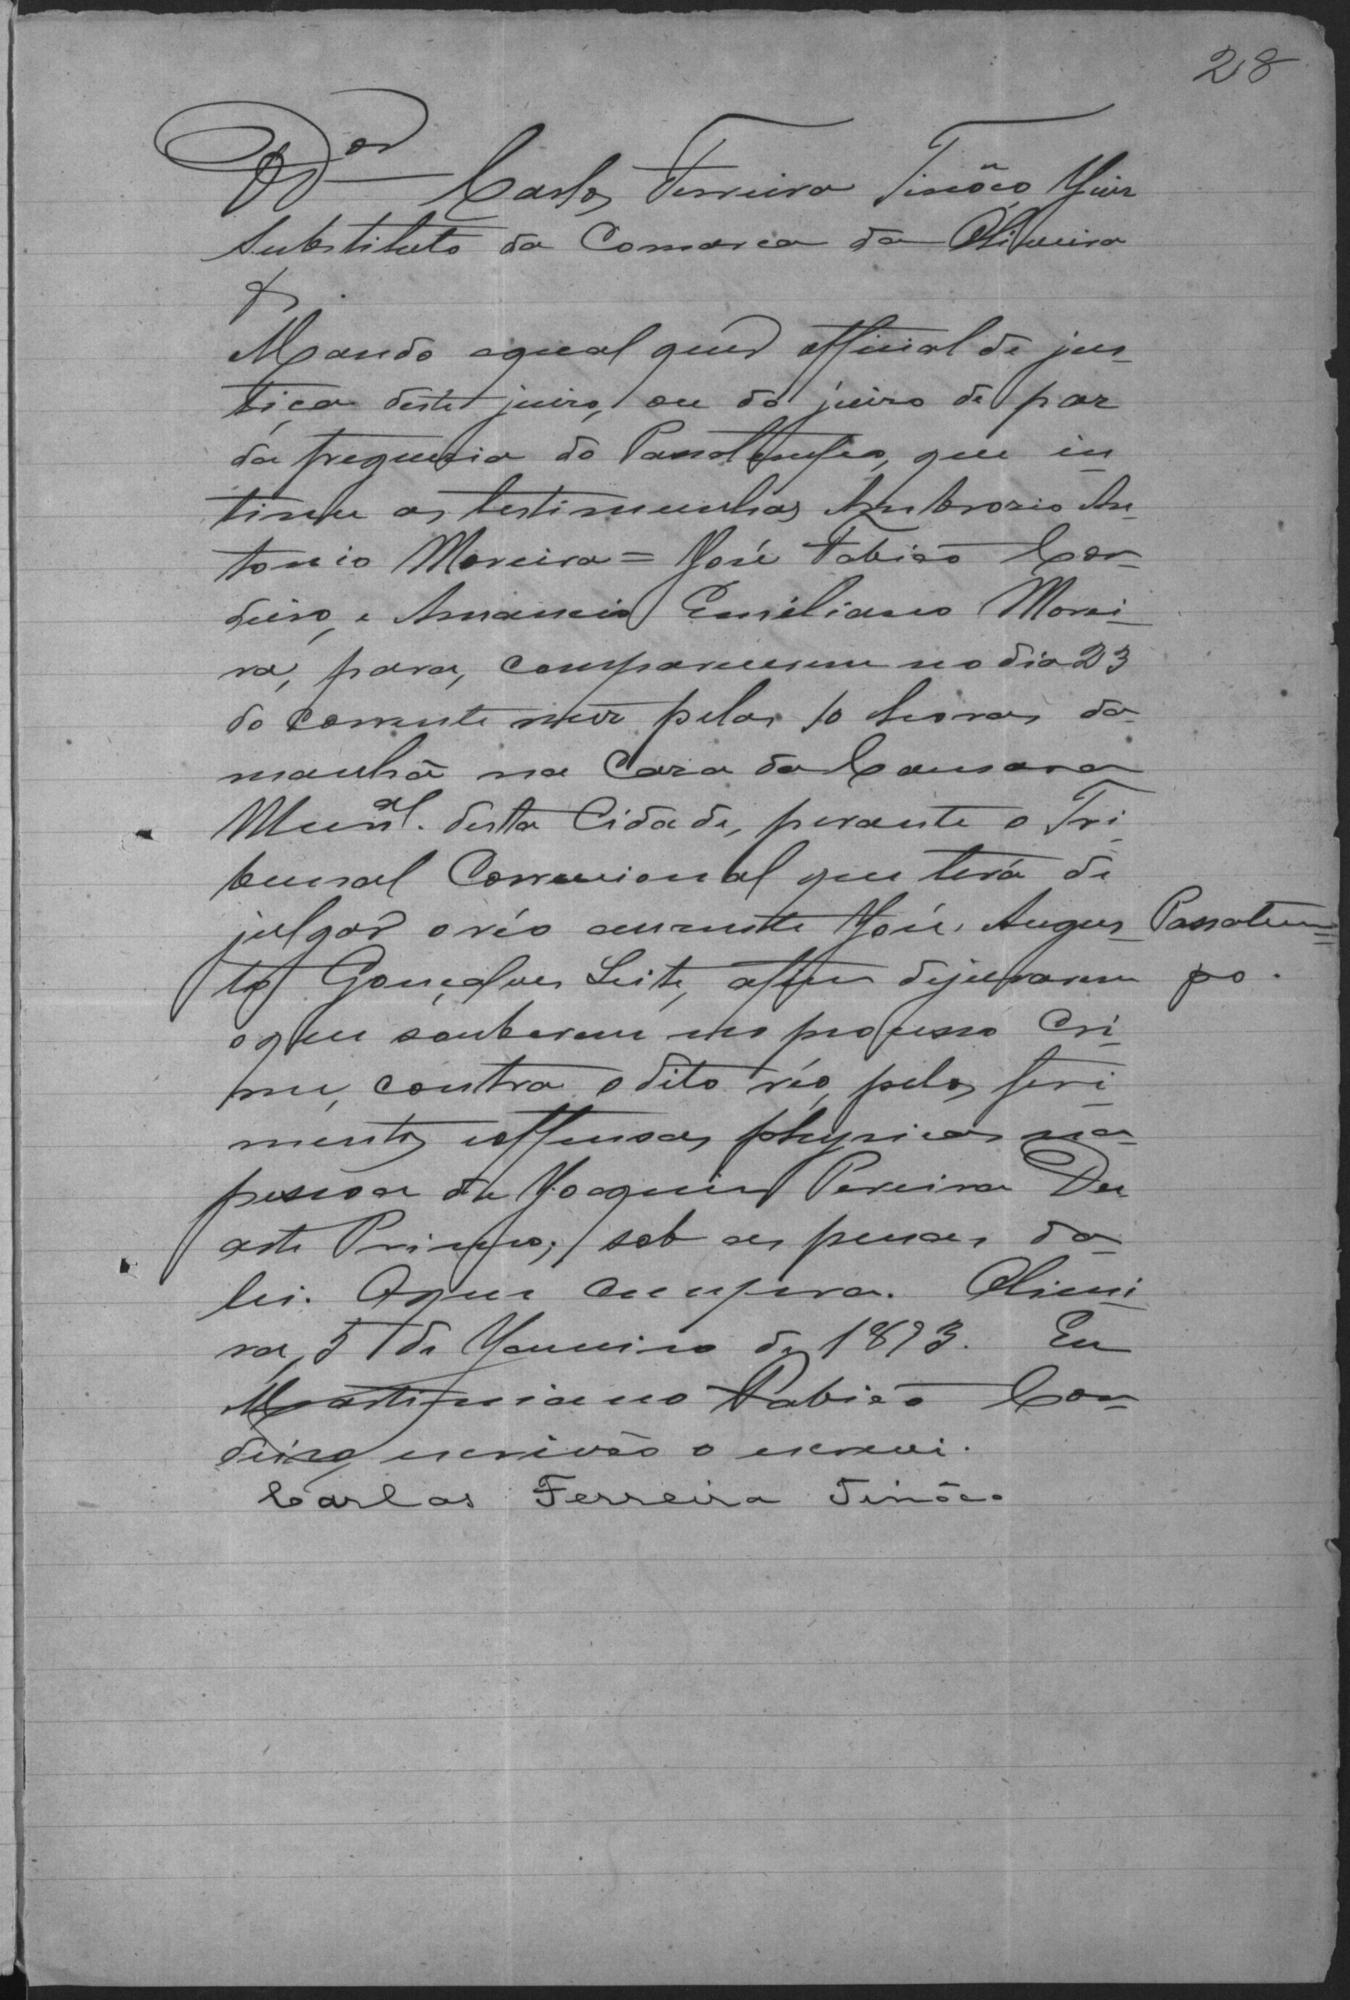 28
O Dor Carlos Ferreira Tinôco Juiz
substituto da Comarca da Oliveira
&.
Mando aqual quer official de jus-
tiça deste juizo, ou do juizo de paz
da freguesia do Passatempo, que in-
time as testimunhas Ambrozio An-
tonio Moreira = José Fabião Cor-
deiro, e Amancio Emiliano Morei-
ra, para, comparecerem no dia 23
do corrente mez pelas 10 horas da
manhã na Caza da Camara
Munal. desta Cidade, perante o Tri-
bunal Correcional que terá de
julgar o réo auzente José Augus-
to Gonçalves Leite, afim dejurarem
oque souberem no processo cri-
me, contra o dito réo, pelos feri-
mentos eoffensas physicas na
pessoa de Joaquim Pereira Du
arte Primo; sob as penas da
lei. Oque cumpra. Olivei-
ra, 5 de Janeiro de 1893. Eu
Martiniano Fabião Cor-
deiro escrivão o escrevi.
Carlos Ferreira Tinôco
Passatem=
po.